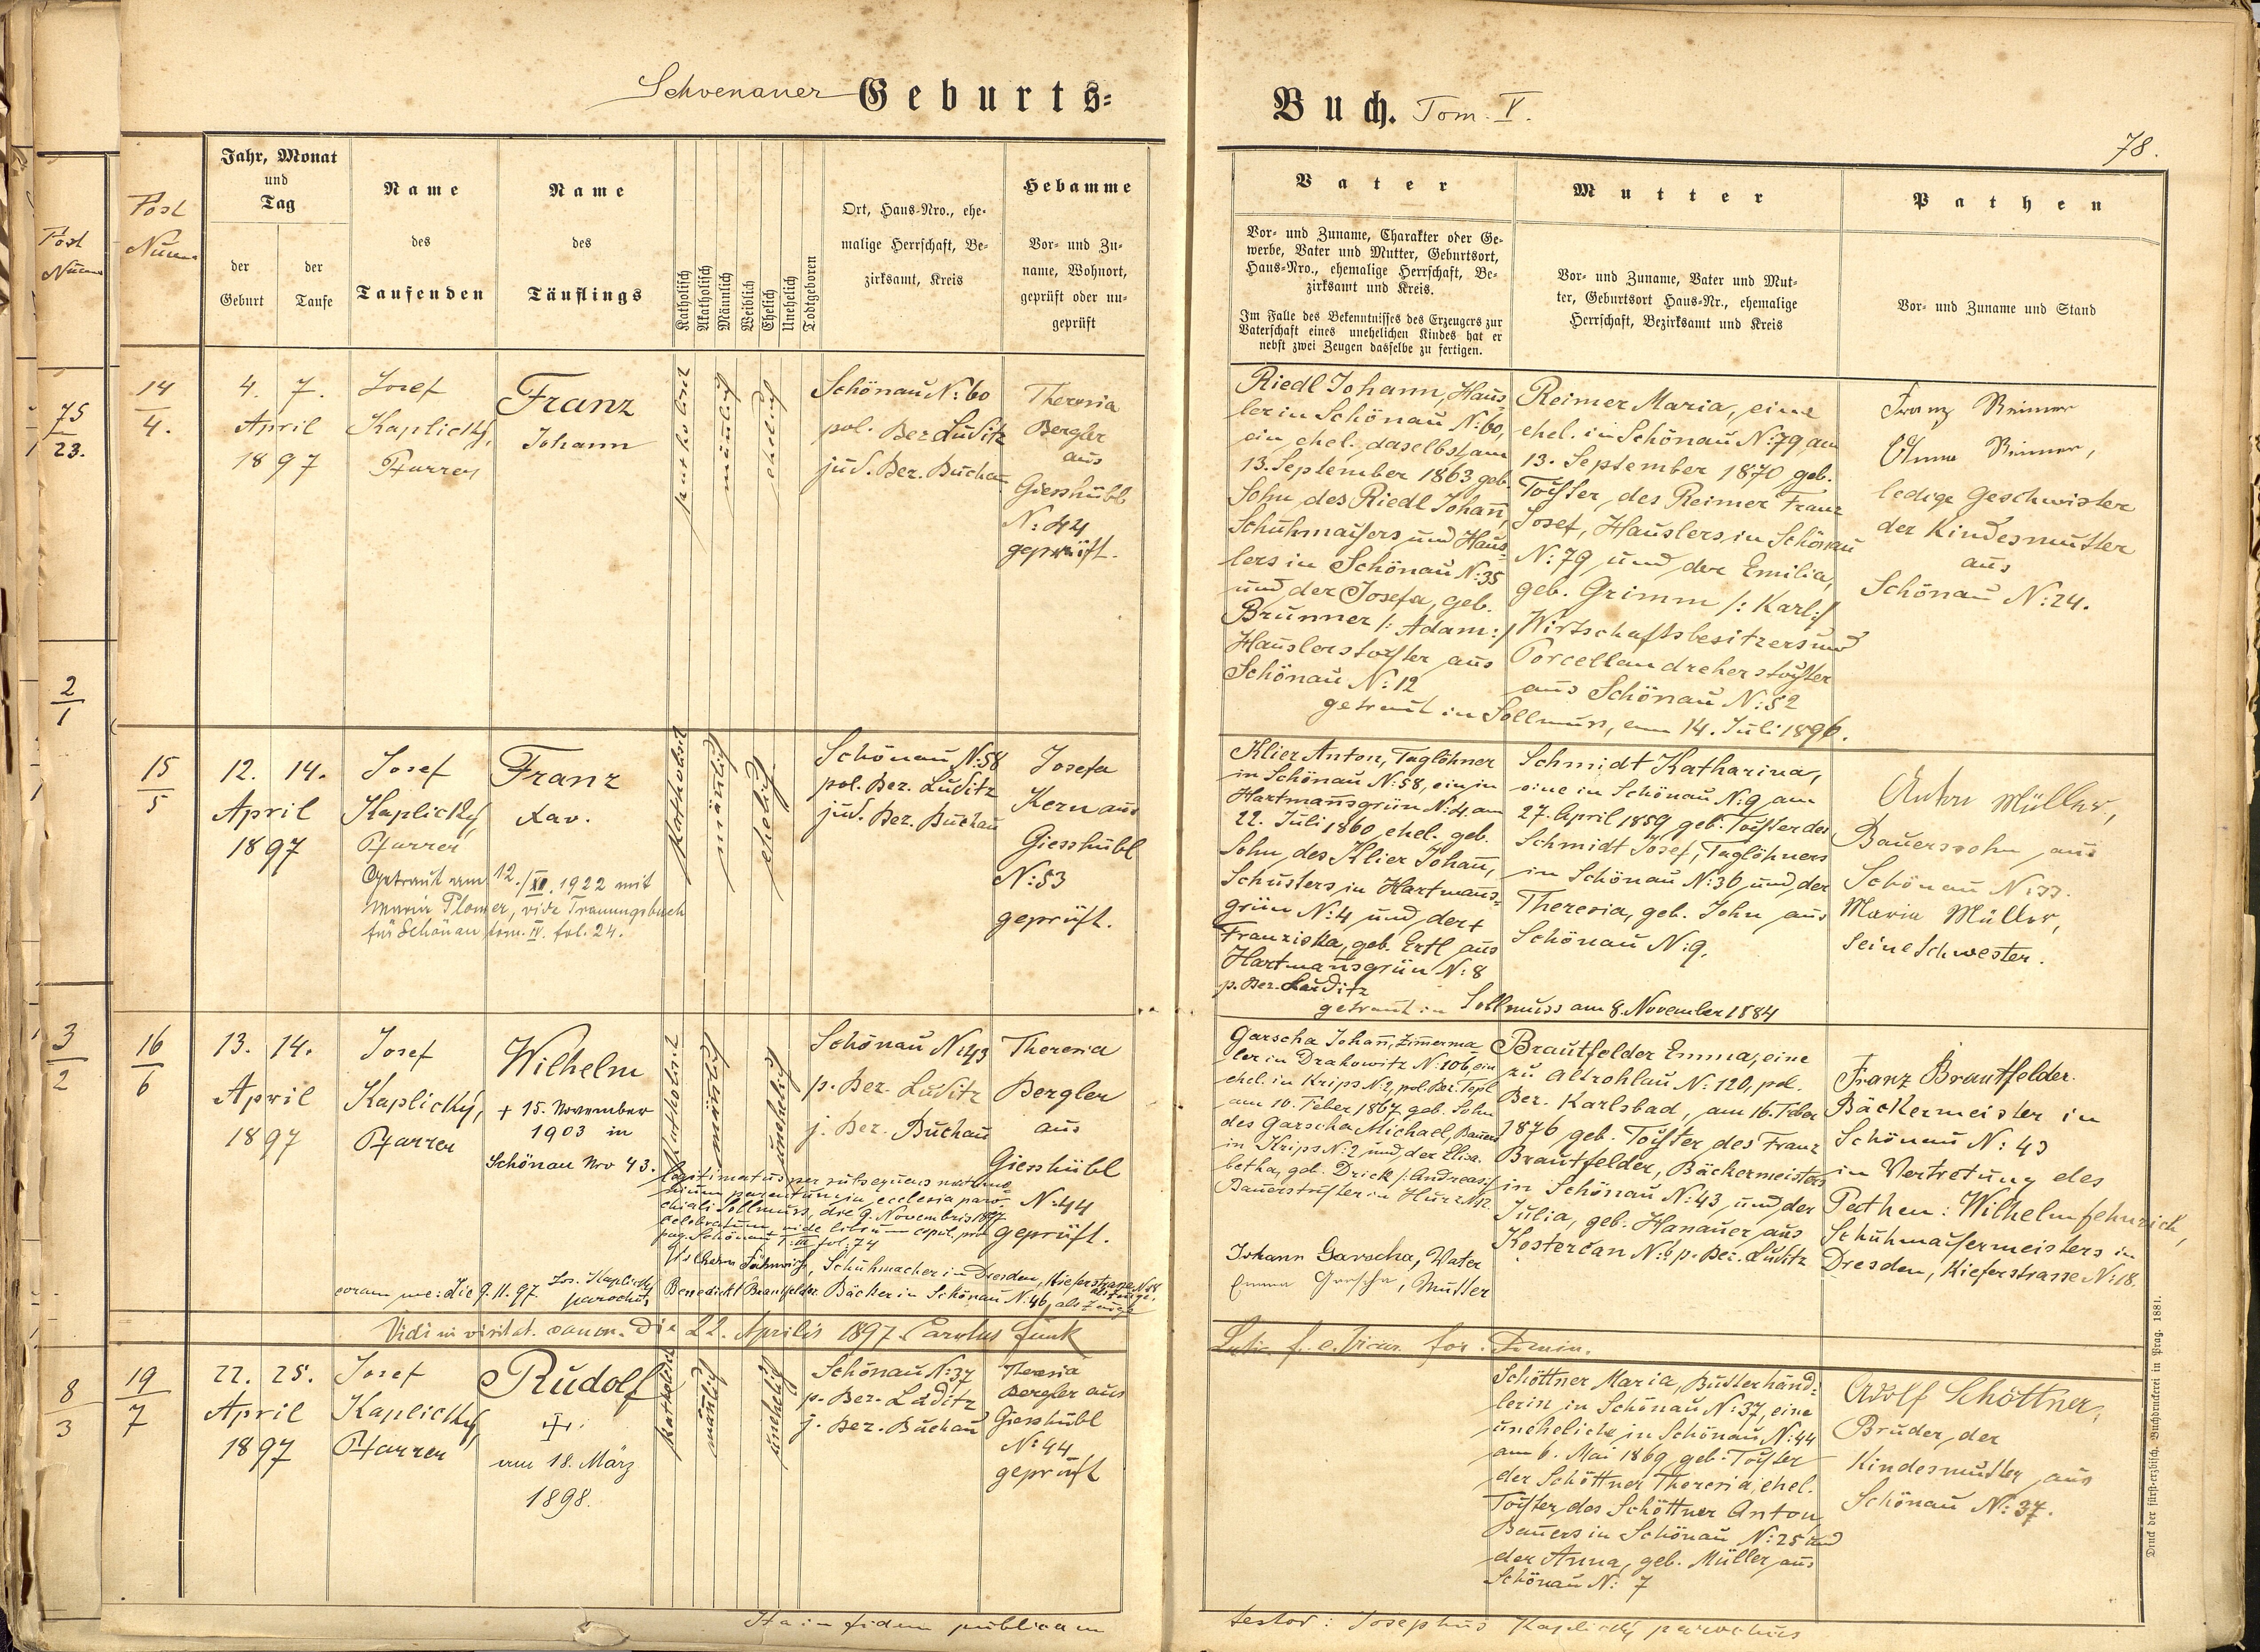 Schoenauer Geburts=
Buch. Tom. V.
78.
Post
Num.
Post
Num.
Jahr, Monat
und
Tag
der
Geburt
der
Taufe
Name
des
Taufenden
Name
des
Täuflings
Katholisch
Akatholisch
Männlich
Weiblich
Ehelich
Unehelich
Todtgeboren
Ort, Haus-Nro., ehe-
malige Herrschaft, Be-
zirksamt, Kreis
Hebamme
Vor- und Zu-
name, Wohnort,
geprüft oder un-
geprüft
Vater
Vor- und Zuname, Charakter oder Ge-
werbe, Vater und Mutter, Geburtsort,
Haus-Nro., ehemalige Herrschaft, Be-
zirksamt und Kreis.
Im Falle des Bekenntnisses des Erzeugers zur
Vaterschaft eines unehelichen Kindes hat er
nebst zwei Zeugen dasselbe zu fertigen.
Mutter
Vor- und Zuname, Vater und Mut-
ter, Geburtsort Haus-Nr., ehemalige
Herrschaft, Bezirksamt und Kreis
Pathen
Vor- und Zuname und Stand
75
23.
14
4.
4. 7.
April
1897
Josef
Kaplický,
Pfarrer
Franz
Johann
katholisch
männlich
ehelich
Schönau N: 60
pol. Bez. Luditz
jud. Bez. Buchau
Theresia
Bergler
aus
Giesshübl
N: 44
geprüft.
Riedl Johann, Haus-
ler in Schönau N: 60,
ein ehel. daselbst am
13. September 1863 geb.
Sohn des Riedl Johann,
Schuhmachers und Haus-
lers in Schönau N: 35
und der Josefa, geb.
Brunner /: Adam :/
Hauslerstochter aus
Schönau N: 12
Reimer Maria, eine
ehel. in Schönau N: 79 am
13. September 1870 geb.
Tochter des Reimer Franz
Josef, Hauslers in Schönau
N: 79 und der Emilia,
geb. Grimm /: Karl :/
Wirtschaftsbesitzers und
Porcellandreherstochter
aus Schönau N: 52
getraut in Sollmus, am 14. Juli 1896.
Franz Reimer
Anna Reimer,
ledige Geschwister
der Kindesmutter
aus
Schönau N: 24.
2
1
15
5
12. 14.
April
1897
Josef
Kaplický,
Pfarrer
Franz
Xav.
Getraut am 12./XI. 1922 mit
Maria Plomer, vide Trauungsbuch
für Schönau tom. IV. fol. 24.
katholisch
männlich
ehelich
Schönau N: 58
pol. Bez. Luditz
jud. Bez. Buchau
Josefa
Kern aus
Giesshübl
N: 53
geprüft.
Klier Anton, Taglöhner
in Schönau N: 58, ein in
Hartmansgrün N: 4 am
22. Juli 1860 ehel. geb.
Sohn des Klier Johann,
Schusters in Hartmans-
grün N: 4 und der +
Franziska, geb. Ertl aus
Hartmansgrün N: 8
p. Bez. Luditz
Schmidt Katharina,
eine in Schönau N: 9 am
27. April 1859 geb. Tochter des
Schmidt Josef, Taglöhners
in Schönau N: 36 und der
Theresia, geb. John aus
Schönau N: 9.
getraut in Sollmuss am 8. November 1884
Anton Müller,
Bauerssohn aus
Schönau N: 33.
Maria Müller,
seine Schwester.
3
2
16
6
13. 14.
April
1897
Josef
Kaplický,
Pfarrer
Wilhelm
+ 15. November
1903 in
Schönau Nro 43.
katholisch
männlich
unehelich
Schönau N: 43
p. Bez. Luditz
j. Bez. Buchau
Theresia
Bergler
aus
Giesshübl
N: 44
geprüft.
legitimatus per subsequens matrimo-
nium parentum in ecclesia paro-
chiali Sollmuss, die 9. Novembris 1897
celebratum, vide librum copul. pro
pag. Schönau T: III fol: 74
Wilhelm Fähnrich, Schuhmacher in Dresden, Kieferstrasse N: 18
als Zeuge.
coram me: die 9. 11. 97. Jos. Kaplický
parochus
Benedickt Brautfelder Bäcker in Schönau N: 46, als Zeuge
Garscha Johann, Zimerma
ler in Drahowitz N: 106, ein
ehel. in Krips N: 2, pol. Bez. Tepl
am 10. Feber 1867 geb. Sohn
des Garscha Michael, Bauers
in Krips N: 2 und der Elisa-
betha, geb. Drick /: Andreas :/
Bauerstochter in Hurz N: 12.
Johann Garscha, Vater
Emma Garscha, Mutter
Brautfelder Emma, eine
zu Altrohlau N: 120, pol.
Bez. Karlsbad, am 16. Feber
1876 geb. Tochter des Franz
Brautfelder, Bäckermeisters
in Schönau N: 43 und der
Julia, geb. Hanauer aus
Kosterčan N: 6 p. Bez. Luditz
Franz Brautfelder.
Bäckermeister in
Schönau N: 43
in Vertretung des
Pathen: Wilhelm Fehnrich,
Schuhmachermeisters in
Dresden, Kieferstrasse N: 18.
Vidi in visitat. canon. die 22. Aprilis 1897 Carolus Funk
8
3
19
7
22. 25.
April
1897
Josef
Kaplický,
Pfarrer
Rudolf
+.
am 18. März
1898.
katholisch
männlich
unehelich
Schönau N: 37
p. Bez. Luditz
j. Bez. Buchau
Theresia
Bergler aus
Giesshübl
N: 44
geprüft
Schöttner Maria, Butterhänd-
lerin in Schönau N: 37, eine
uneheliche in Schönau N: 44
am 6. Mai 1869 geb. Tochter
der Schöttner Theresia, ehel.
Tochter des Schöttner Anton
Bauers in Schönau N: 25 und
der Anna, geb. Müller aus
Schönau N: 7
Adolf Schöttner,
Bruder der
Kindesmutter aus
Schönau N: 37.
Ita in fidem publicam
testor: Josephus Kaplický parochus
Druck der fürst-erzbisch. Buchdruckerei in Prag. 1881.